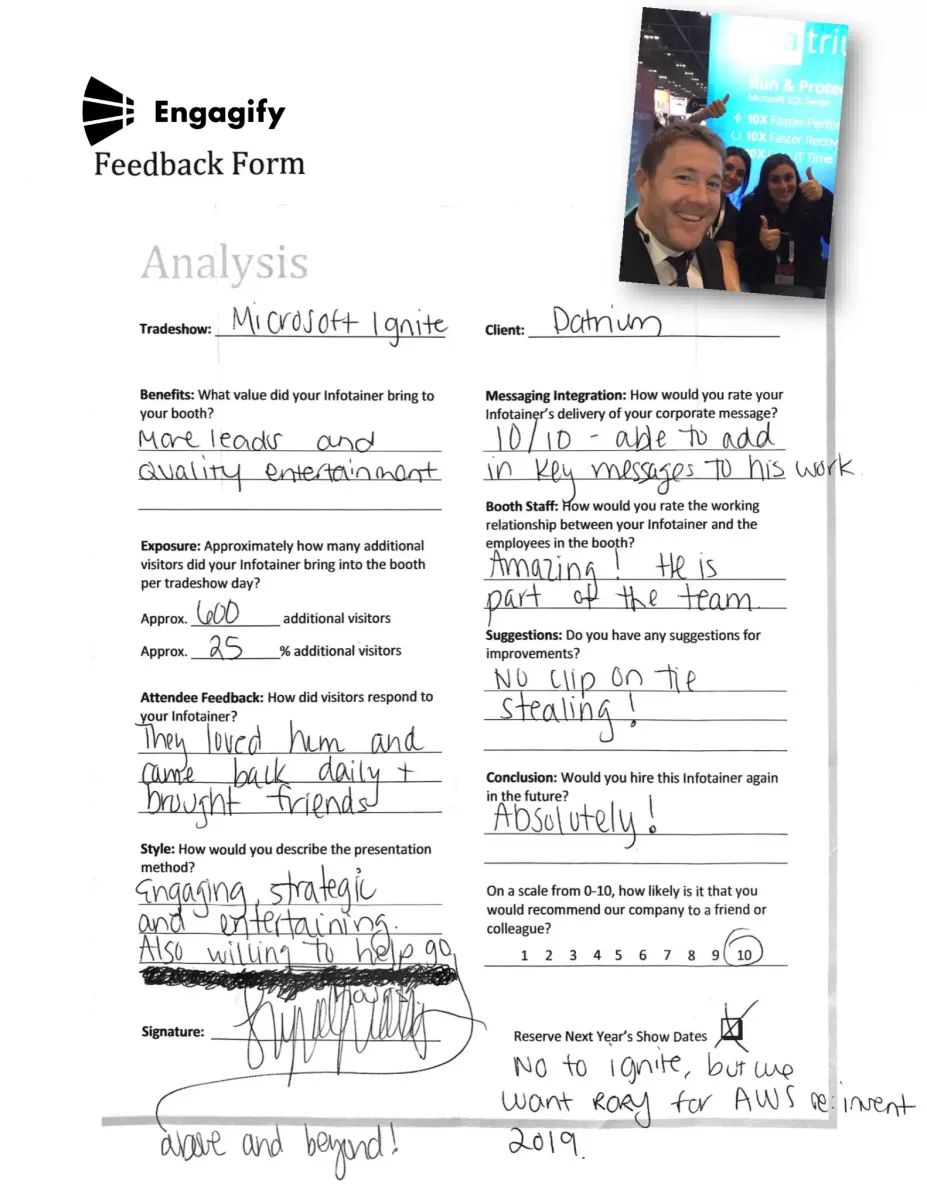 Engagify
Feedback Form
atriu
Run & Prote
Microsoft SQL Server
10X Faster Perfo
10X Faster Recov
0X IT Time
Analysis
Tradeshow: Microsoft Ignite
Client: Datrium
Benefits: What value did your Infotainer bring to
your booth?
More leads and
quality entertainment
Exposure: Approximately how many additional
visitors did your Infotainer bring into the booth
per tradeshow day?
Approx. 600 additional visitors
Approx. 25 % additional visitors
Attendee Feedback: How did visitors respond to
your Infotainer?
They loved him and
came back daily +
brought friends
Style: How would you describe the presentation
method?
Engaging, strategic
and entertaining.
Also willing to help go
above and beyond!
Signature:
Messaging Integration: How would you rate your
Infotainer's delivery of your corporate message?
10/10 - able to add
in key messages to his work.
Booth Staff: How would you rate the working
relationship between your Infotainer and the
employees in the booth?
Amazing! He is
part of the team
Suggestions: Do you have any suggestions for
improvements?
No clip on tie
stealing!
Conclusion: Would you hire this Infotainer again
in the future?
Absolutely!
On a scale from 0-10, how likely is it that you
would recommend our company to a friend or
colleague?
1 2 3 4 5 6 7 8 9 10
Reserve Next Year's Show Dates
No to ignite, but we
want Rory for AWS re:invent
2019.